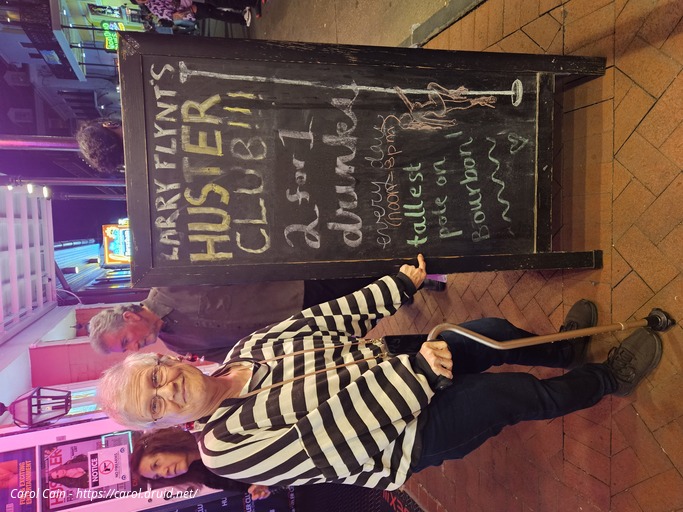 LARRY FLYNT'S
HUSTER
CLUB!!!
2 for 1
drinks
every day
(noon-8pm)
tallest
pole on
Bourbon!
NOTICE
Carol Cain - https://carol.druid.net/